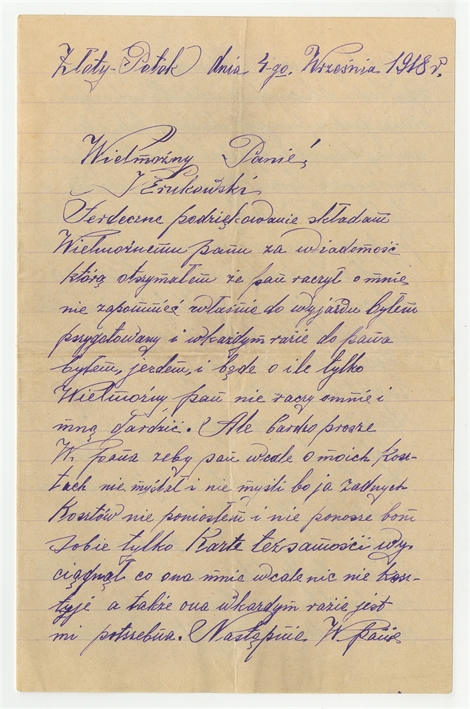 Złoty-Potok dnia 4-go. Września 1918 r.
Wielmożny Panie!
Żrukowski
Serdeczne podziękowanie składam
Wielmożnemu panu za wiadomość
którą otrzymałem że pan raczył o mnie
nie zapomnieć właśnie do wyjazdu byłem
przygotowany i wkażdym razie do pana
byłem, jezdem, i będe o ile tylko
Wielmożny pan nie raczy omnie i
mną gardzić. Ale bardzo prosze
W. Pana zeby pan wcale o moich Kosz-
tach nie myślał i nie myśli bo ja żadnych
Kosztów nie poniosłem i nie ponosze bom
sobie tylko Karte tezsamości wy-
ciągnął co ona mnie wcale nic nie kosz-
tyje a także ona wkazdym razie jest
mi potrzebna. Następnie W. Panie